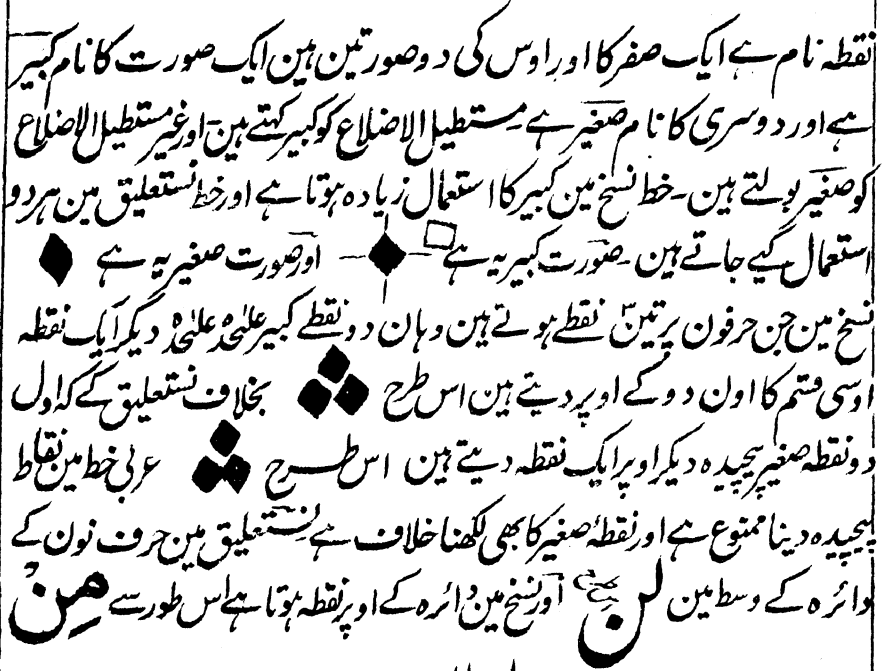 نقطہ نام ہے ایک صفر کا اور اوس کی دو صورتین ہین ایک صورت کا نام کبیر
ہے اور دوسری کا نام صغیر ہے۔ مستطیل الاضلاع کو کبیر کہتے ہین۔ اور غیر مستطیل الاضلاع
کو صغیر بولتے ہین۔ خط نسخ مین کبیر کا استعمال زیادہ ہوتا ہے اور خط نستعلیق مین ہر دو
استعمال کیے جاتے ہین۔ صورت کبیر یہ ہے اور صورت صغیر یہ ہے
نسخ مین جن حرفون پر تین نقطے ہوتے ہین وہان دو نقطے کبیر علیٰحدہ علیٰحدہ دیکر ایک نقطہ
اوسی قسم کا اون دو کے اوپر دیتے ہین اس طرح بخلاف نستعلیق کے کہ اول
دو نقطہ صغیر پیچیدہ دیکر اوپر ایک نقطہ دیتے ہین اس طرح عربی خط مین نقاط
پیچیدہ دینا ممنوع ہے اور نقطۂ صغیر کا بھی لکھنا خلاف ہے نستعلیق مین حرف نون کے
دائرہ کے وسط مین لن اور نسخ مین دائرہ کے اوپر نقطہ ہوتا ہے اس طور سے مِنْ